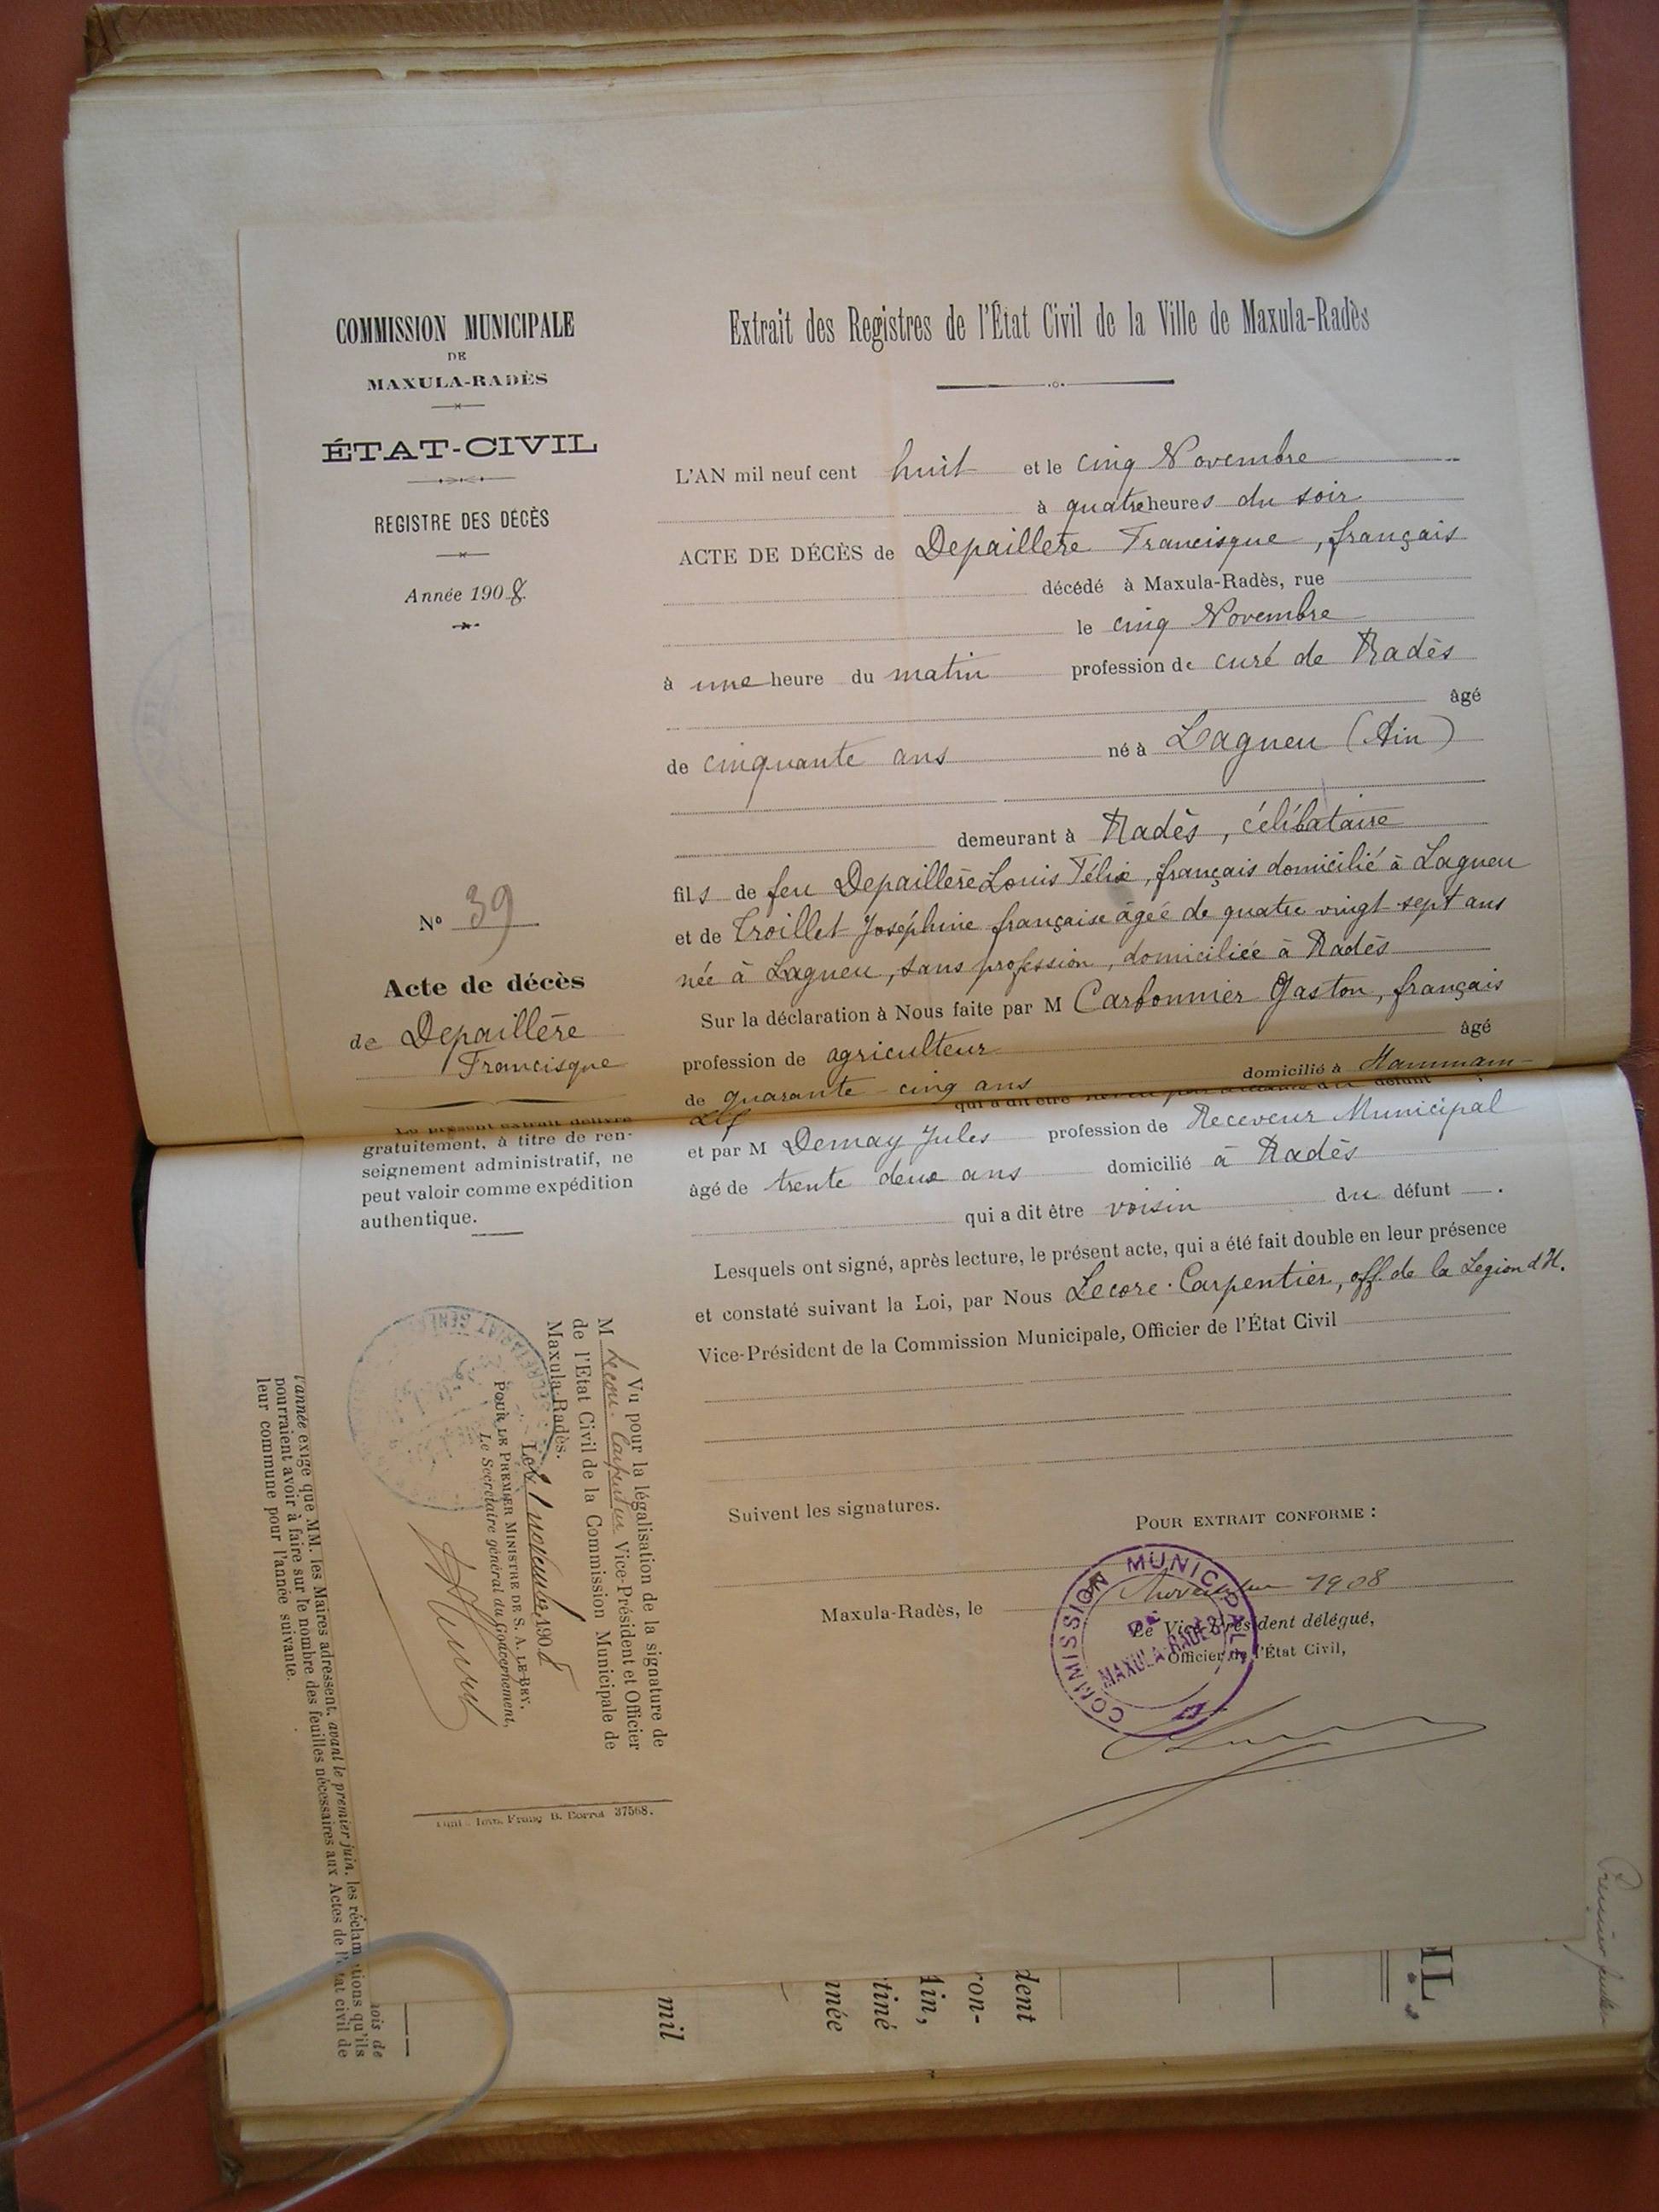 COMMISSION MUNICIPALE
DE
MAXULA-RADÈS
ÉTAT-CIVIL
REGISTRE DES DÉCÈS
Année 1908.
N° 39
Acte de décès
de Depaillère
Francisque
Le présent extrait délivré
gratuitement, à titre de ren-
seignement administratif, ne
peut valoir comme expédition
authentique.
Extrait des Registres de l'État Civil de la Ville de Maxula-Radès
L'AN mil neuf cent huit et le cinq Novembre
à quatre heures du soir
ACTE DE DÉCÈS de Depaillère Francisque, français
décédé à Maxula-Radès, rue
le cinq Novembre
à une heure du matin profession de curé de Radès
âgé
de cinquante ans né à Lagneu (Ain)
demeurant à Radès, célibataire
fils de feu Depaillère Louis Félix, français domicilié à Lagneu
et de Troillet Joséphine française âgée de quatre vingt sept ans
née à Lagneu, sans profession, domiciliée à Radès
Sur la déclaration à Nous faite par M Carbonnier Gaston, français
profession de agriculteur âgé
de quarante-cinq ans domicilié à Hammam-
Lif qui a dit être défunt
et par M Demay Jules profession de Receveur Municipal
âgé de trente deux ans domicilié à Radès
qui a dit être voisin du défunt.
Lesquels ont signé, après lecture, le présent acte, qui a été fait double en leur présence
et constaté suivant la Loi, par Nous Lecore-Carpentier, off. de la Legion d'H.
Vice-Président de la Commission Municipale, Officier de l'État Civil
Suivent les signatures.
POUR EXTRAIT CONFORME :
Maxula-Radès, le novembre 1908
Le Vice-Président délégué,
Officier de l'État Civil,
COMMISSION MUNICIPALE
DE
MAXULA-RADÈS
Vu pour la légalisation de la signature de
M Lecore-Carpentier Vice-Président et Officier
de l'État Civil de la Commission Municipale de
Maxula-Radès.
Le novembre 1908
POUR LE PREMIER MINISTRE DE S. A. LE BEY,
Le Secrétaire général du Gouvernement,
37568.
l'année exige que MM. les Maires adressent, avant le premier juin, les réclamations qu'ils
pourraient avoir à faire sur le nombre des feuilles nécessaires aux Actes de l'état civil de
leur commune pour l'année suivante.
mois de
mil
née
tiné
Ain,
ron-
dent
IL.